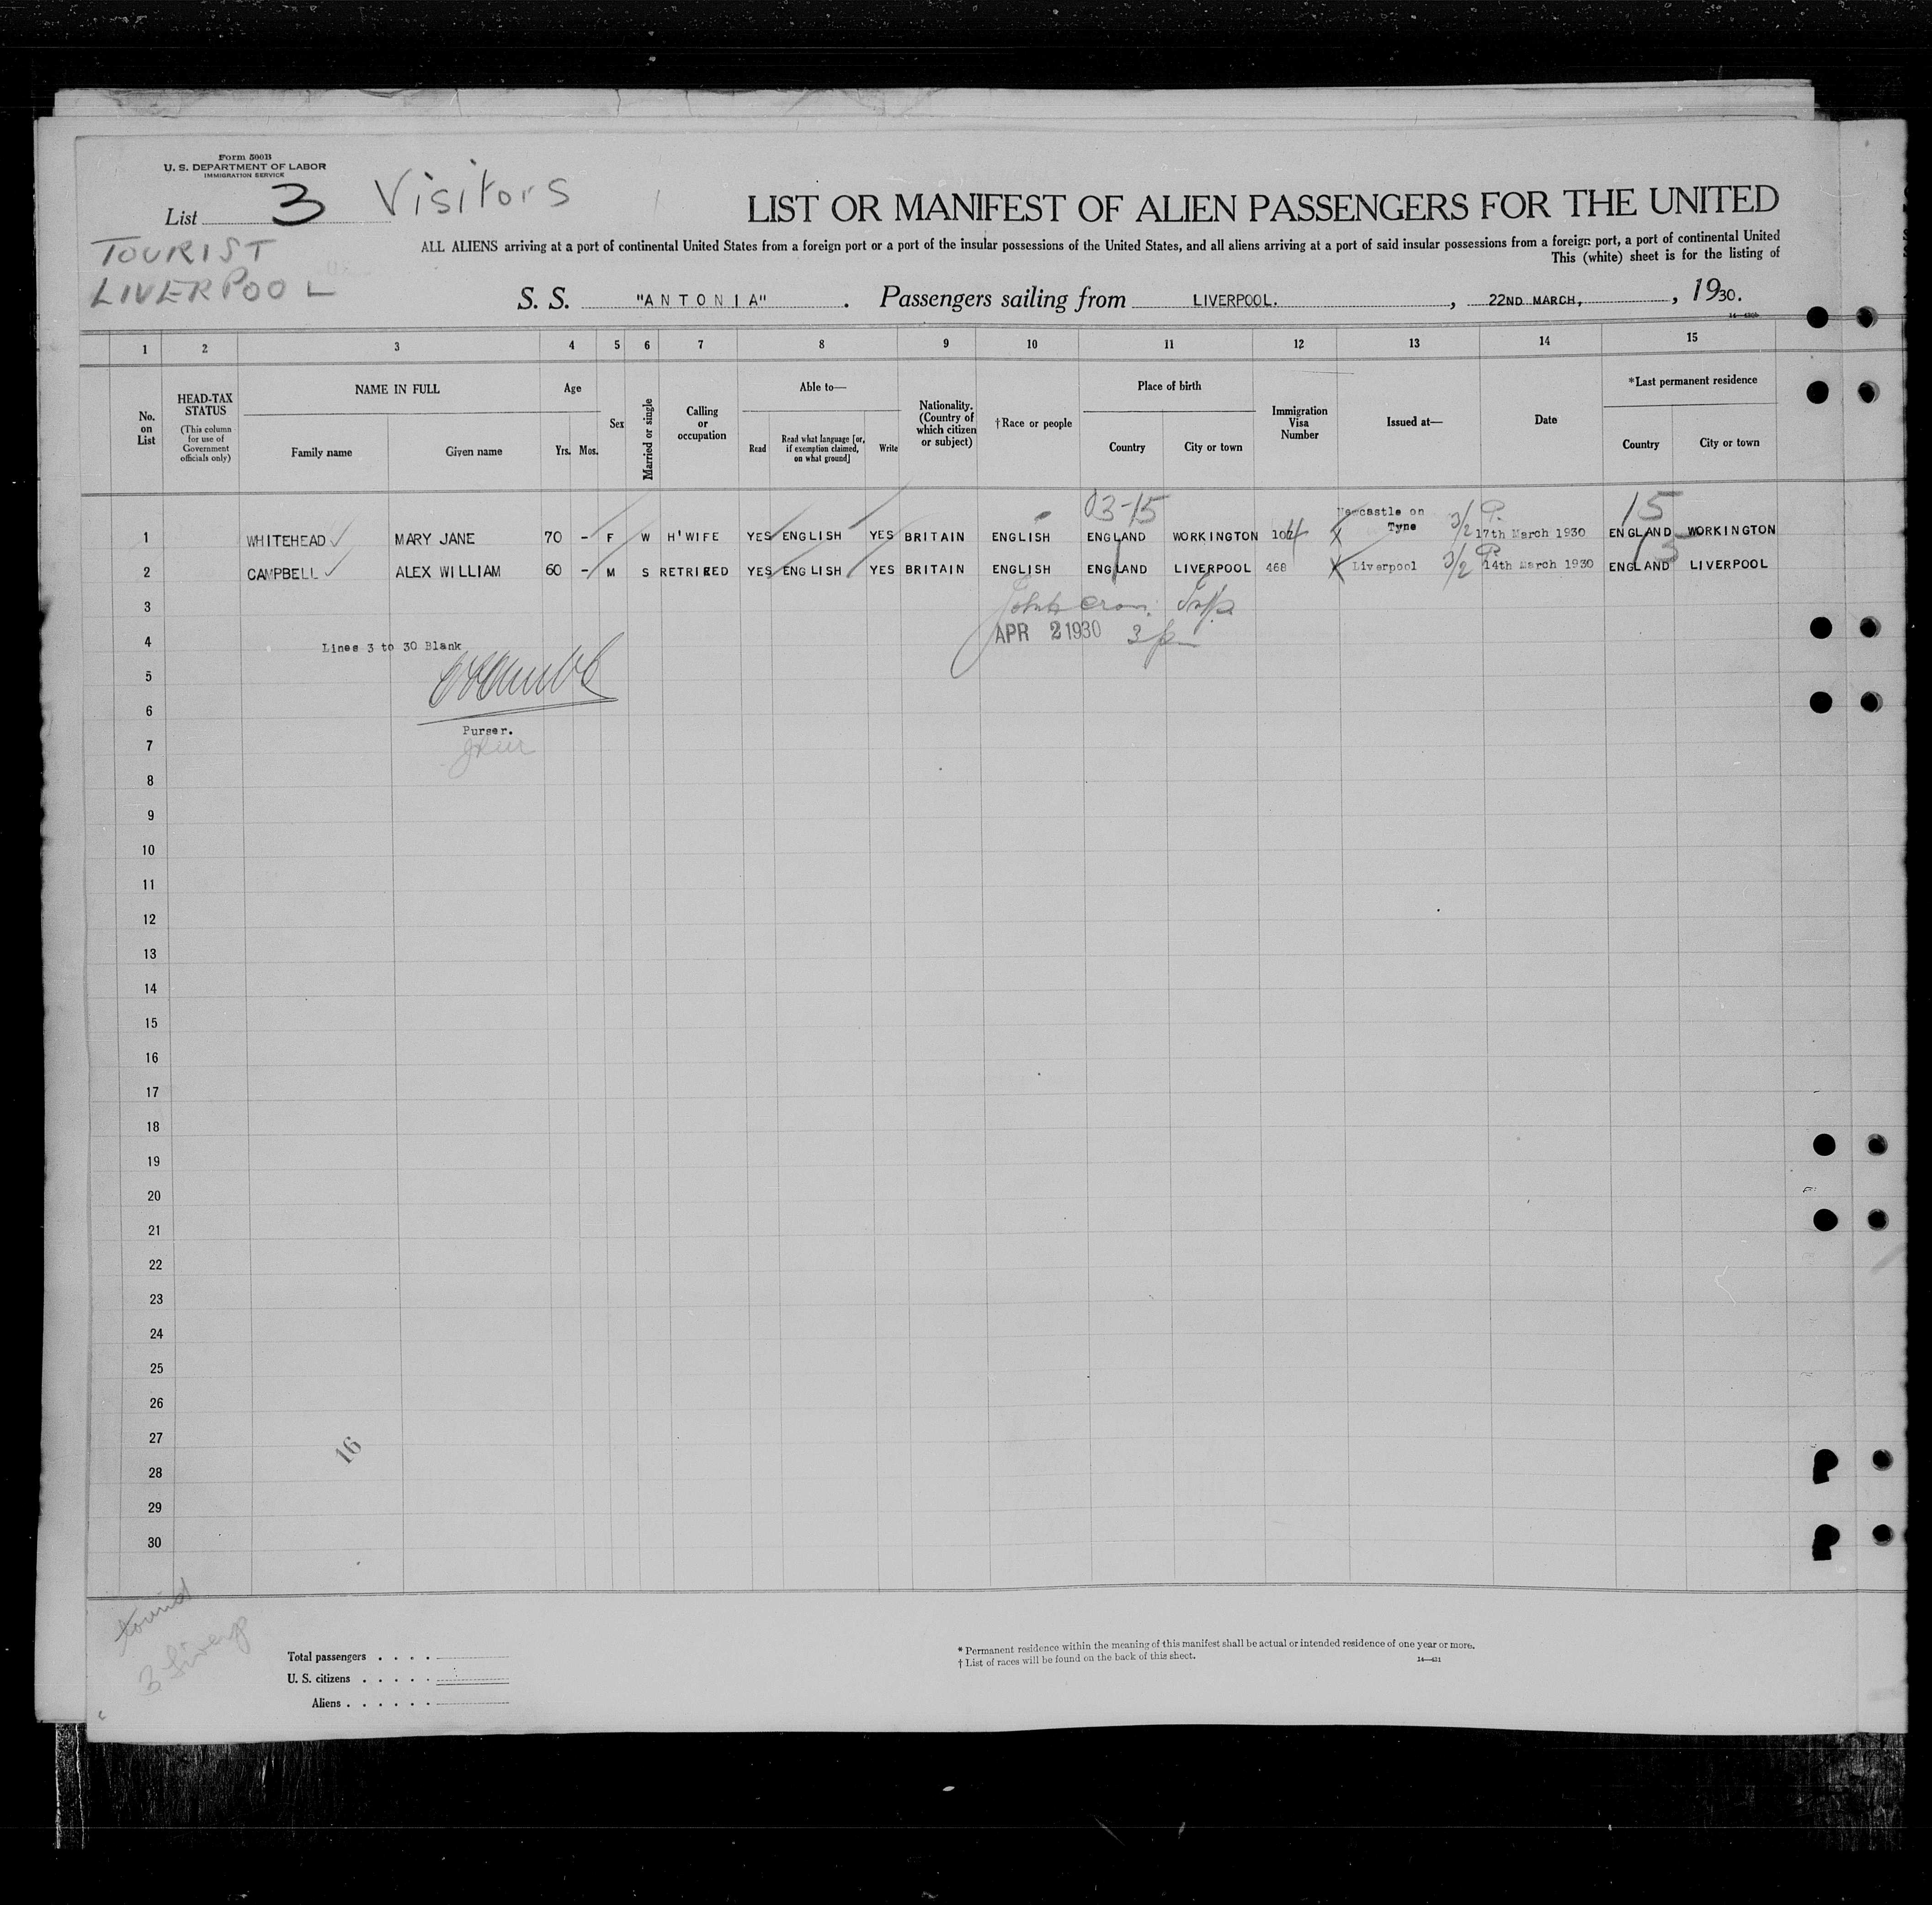 Form 500B
U. S. DEPARTMENT OF LABOR
IMMIGRATION SERVICE
List 3 Visitors
TOURIST
LIVERPOOL
LIST OR MANIFEST OF ALIEN PASSENGERS FOR THE UNITED
ALL ALIENS arriving at a port of continental United States from a foreign port or a port of the insular possessions of the United States, and all aliens arriving at a port of said insular possessions from a foreign port, a port of continental United
This (white) sheet is for the listing of
S. S. "ANTONIA". Passengers sailing from LIVERPOOL. , 22ND MARCH, , 1930.
1 2 3 4 5 6 7 8 9 10 11 12 13 14 15
No. on List
HEAD-TAX STATUS (This column for use of Government officials only)
NAME IN FULL
Family name Given name
Age
Yrs. Mos.
Sex
Married or single
Calling or occupation
Able to—
Read Read what language [or, if exemption claimed, on what ground] Write
Nationality. (Country of which citizen or subject)
†Race or people
Place of birth
Country City or town
Immigration Visa Number
Issued at—
Date
*Last permanent residence
Country City or town
03-15 15
1 WHITEHEAD MARY JANE 70 - F W H'WIFE YES ENGLISH YES BRITAIN ENGLISH ENGLAND WORKINGTON 104 Newcastle on Tyne 3/2 P. 17th March 1930 ENGLAND WORKINGTON
2 CAMPBELL ALEX WILLIAM 60 - M S RETRIRED YES ENGLISH YES BRITAIN ENGLISH ENGLAND LIVERPOOL 468 Liverpool 3/2 P. 14th March 1930 ENGLAND LIVERPOOL
3
4 APR 2 1930
Lines 3 to 30 Blank
5
6
Purser.
7
8
9
10
11
12
13
14
15
16
17
18
19
20
21
22
23
24
25
26
27
16
28
29
30
Total passengers . . . .
U. S. citizens . . . . .
Aliens . . . . . .
* Permanent residence within the meaning of this manifest shall be actual or intended residence of one year or more.
† List of races will be found on the back of this sheet.
14—431